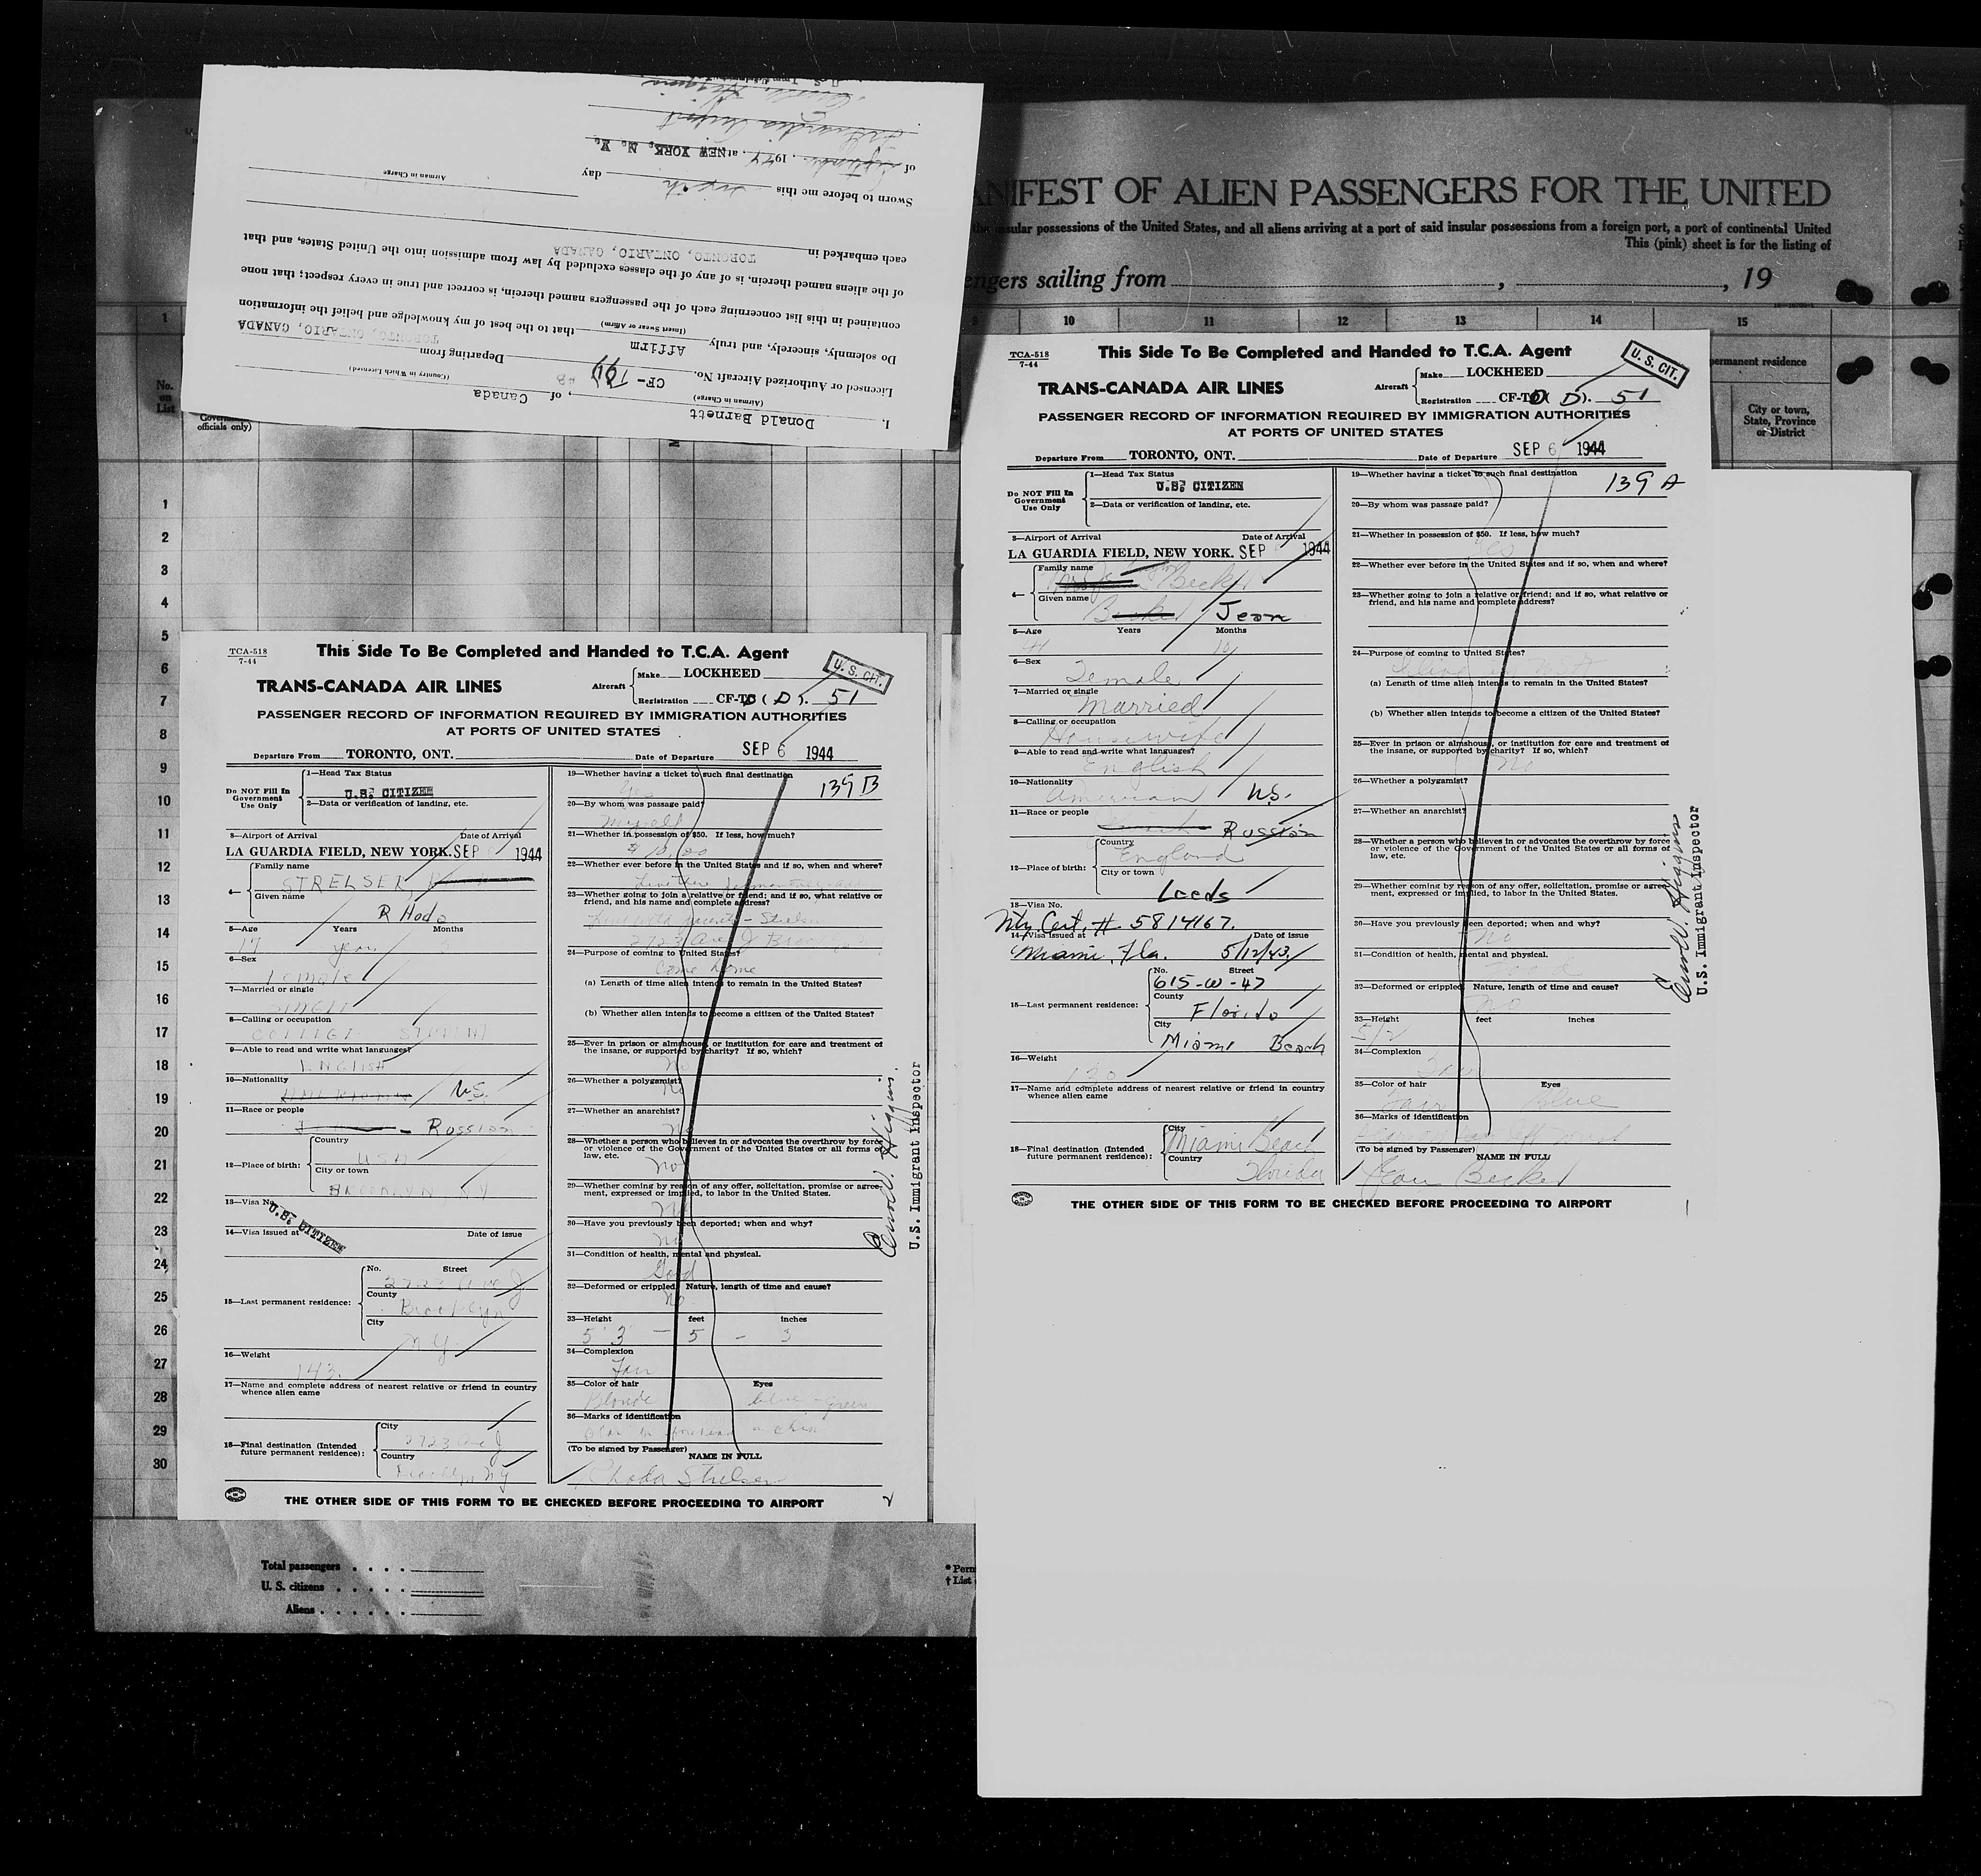 I, Donald Barnett, of Canada
(Airman in Charge) (Country in Which Licensed)
Licensed or Authorized Aircraft No. CF- Departing from TORONTO, ONTARIO, CANADA
Do solemnly, sincerely, and truly Affirm that to the best of my knowledge and belief the information
(Insert Swear or Affirm)
contained in this list concerning each of the passengers named therein, is correct and true in every respect; that none
of the aliens named therein, is of any of the classes excluded by law from admission into the United States, and that
each embarked in TORONTO, ONTARIO, CANADA
Airman in Charge
Sworn to before me this sixth day
of September, 1944, at NEW YORK, N. Y.
ANIFEST OF ALIEN PASSENGERS FOR THE UNITED
insular possessions of the United States, and all aliens arriving at a port of said insular possessions from a foreign port, a port of continental United
This (pink) sheet is for the listing of
engers sailing from , , 19
1 10 11 12 13 14 15
No. on List
officials only)
permanent residence
City or town, State, Province or District
1
2
3
4
5
6
7
8
9
10
11
12
13
14
15
16
17
18
19
20
21
22
23
24
25
26
27
28
29
30
Total passengers
U. S. citizens
Aliens
* Perm
† List
TCA-518
7-44
This Side To Be Completed and Handed to T.C.A. Agent
U. S. CIT.
TRANS-CANADA AIR LINES
Aircraft Make LOCKHEED
Registration CF-T (D). 51
PASSENGER RECORD OF INFORMATION REQUIRED BY IMMIGRATION AUTHORITIES
AT PORTS OF UNITED STATES
Departure From TORONTO, ONT. Date of Departure SEP 6 1944
Do NOT Fill In Government Use Only
1—Head Tax Status
U.S. CITIZEN
2—Data or verification of landing, etc.
3—Airport of Arrival Date of Arrival
LA GUARDIA FIELD, NEW YORK. SEP 1944
4— Family name
STRELSER,
Given name
RHoda
5—Age Years Months
17 years
6—Sex
Female
7—Married or single
SINGLE
8—Calling or occupation
COLLEGE STUDENT
9—Able to read and write what languages?
ENGLISH
10—Nationality
U.S.
11—Race or people
Russian
12—Place of birth: Country
USA
City or town
BROOKLYN NY
13—Visa No.
U.S. CITIZEN
14—Visa issued at Date of issue
15—Last permanent residence: No. Street
2723 Ave J
County
Brooklyn
City
NY
16—Weight
143
17—Name and complete address of nearest relative or friend in country whence alien came
18—Final destination (Intended future permanent residence): City
2723 Ave J
Country
Brooklyn NY
19—Whether having a ticket to such final destination
139 B
Yes
20—By whom was passage paid?
Myself
21—Whether in possession of $50. If less, how much?
$10.00
22—Whether ever before in the United States and if so, when and where?
23—Whether going to join a relative or friend; and if so, what relative or friend, and his name and complete address?
2723 Ave J
24—Purpose of coming to United States?
Come home
(a) Length of time alien intends to remain in the United States?
(b) Whether alien intends to become a citizen of the United States?
25—Ever in prison or almshouse, or institution for care and treatment of the insane, or supported by charity? If so, which?
No
26—Whether a polygamist?
No
27—Whether an anarchist?
No
28—Whether a person who believes in or advocates the overthrow by force or violence of the Government of the United States or all forms of law, etc.
No
29—Whether coming by reason of any offer, solicitation, promise or agreement, expressed or implied, to labor in the United States.
No
30—Have you previously been deported; when and why?
No
31—Condition of health, mental and physical.
Good
32—Deformed or crippled. Nature, length of time and cause?
No
33—Height feet inches
5'3 — 5 — 3
34—Complexion
Fair
35—Color of hair Eyes
Blonde blue-green
36—Marks of identification
(To be signed by Passenger) NAME IN FULL
Rhoda Strelser
THE OTHER SIDE OF THIS FORM TO BE CHECKED BEFORE PROCEEDING TO AIRPORT
Higgins
U.S. Immigrant Inspector
TCA-518
7-44
This Side To Be Completed and Handed to T.C.A. Agent
U. S. CIT.
TRANS-CANADA AIR LINES
Aircraft Make LOCKHEED
Registration CF-T (D). 51
PASSENGER RECORD OF INFORMATION REQUIRED BY IMMIGRATION AUTHORITIES
AT PORTS OF UNITED STATES
Departure From TORONTO, ONT. Date of Departure SEP 6 1944
Do NOT Fill In Government Use Only
1—Head Tax Status
U.S. CITIZEN
2—Data or verification of landing, etc.
3—Airport of Arrival Date of Arrival
LA GUARDIA FIELD, NEW YORK. SEP 1944
4— Family name
Becker
Given name
Becker Jean
5—Age Years Months
41 10
6—Sex
Female
7—Married or single
Married
8—Calling or occupation
Housewife
9—Able to read and write what languages?
English
10—Nationality
American U.S.
11—Race or people
Russian
12—Place of birth: Country
England
City or town
Leeds
13—Visa No.
Ntz. Cert. # 5814167.
14—Visa issued at Date of issue
Miami, Fla. 5/12/43
15—Last permanent residence: No. Street
615-W-47
County
Florida
City
Miami Beach
16—Weight
130
17—Name and complete address of nearest relative or friend in country whence alien came
18—Final destination (Intended future permanent residence): City
Miami Beach
Country
Florida
19—Whether having a ticket to such final destination
139 A
20—By whom was passage paid?
21—Whether in possession of $50. If less, how much?
Yes
22—Whether ever before in the United States and if so, when and where?
23—Whether going to join a relative or friend; and if so, what relative or friend, and his name and complete address?
24—Purpose of coming to United States?
(a) Length of time alien intends to remain in the United States?
(b) Whether alien intends to become a citizen of the United States?
25—Ever in prison or almshouse, or institution for care and treatment of the insane, or supported by charity? If so, which?
No
26—Whether a polygamist?
27—Whether an anarchist?
28—Whether a person who believes in or advocates the overthrow by force or violence of the Government of the United States or all forms of law, etc.
29—Whether coming by reason of any offer, solicitation, promise or agreement, expressed or implied, to labor in the United States.
30—Have you previously been deported; when and why?
No
31—Condition of health, mental and physical.
Good
32—Deformed or crippled. Nature, length of time and cause?
No
33—Height feet inches
5/2
34—Complexion
Fair
35—Color of hair Eyes
Fair Blue
36—Marks of identification
(To be signed by Passenger) NAME IN FULL
Jean Becker
THE OTHER SIDE OF THIS FORM TO BE CHECKED BEFORE PROCEEDING TO AIRPORT
Higgins
U.S. Immigrant Inspector